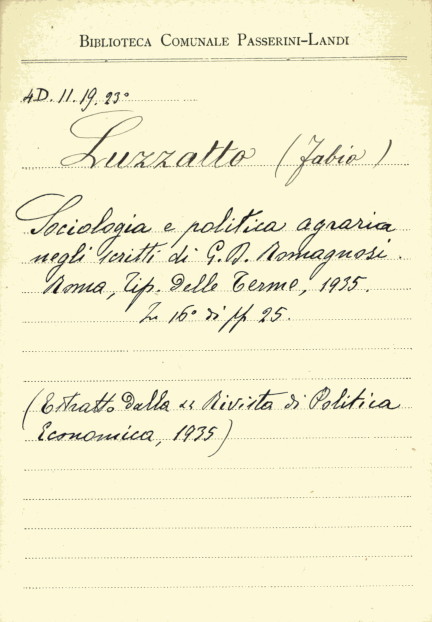 BIBLIOTECA COMUNALE PASSERINI-LANDI
4D. 11. 19. 23°
Luzzatto (Fabio)
Sociologia e politica agraria
negli scritti di G. D. Romagnosi.
Roma, Tip. delle Terme, 1935.
In 16° di pp 25.
(Estratto dalla "Rivista di Politica
Economica, 1935)